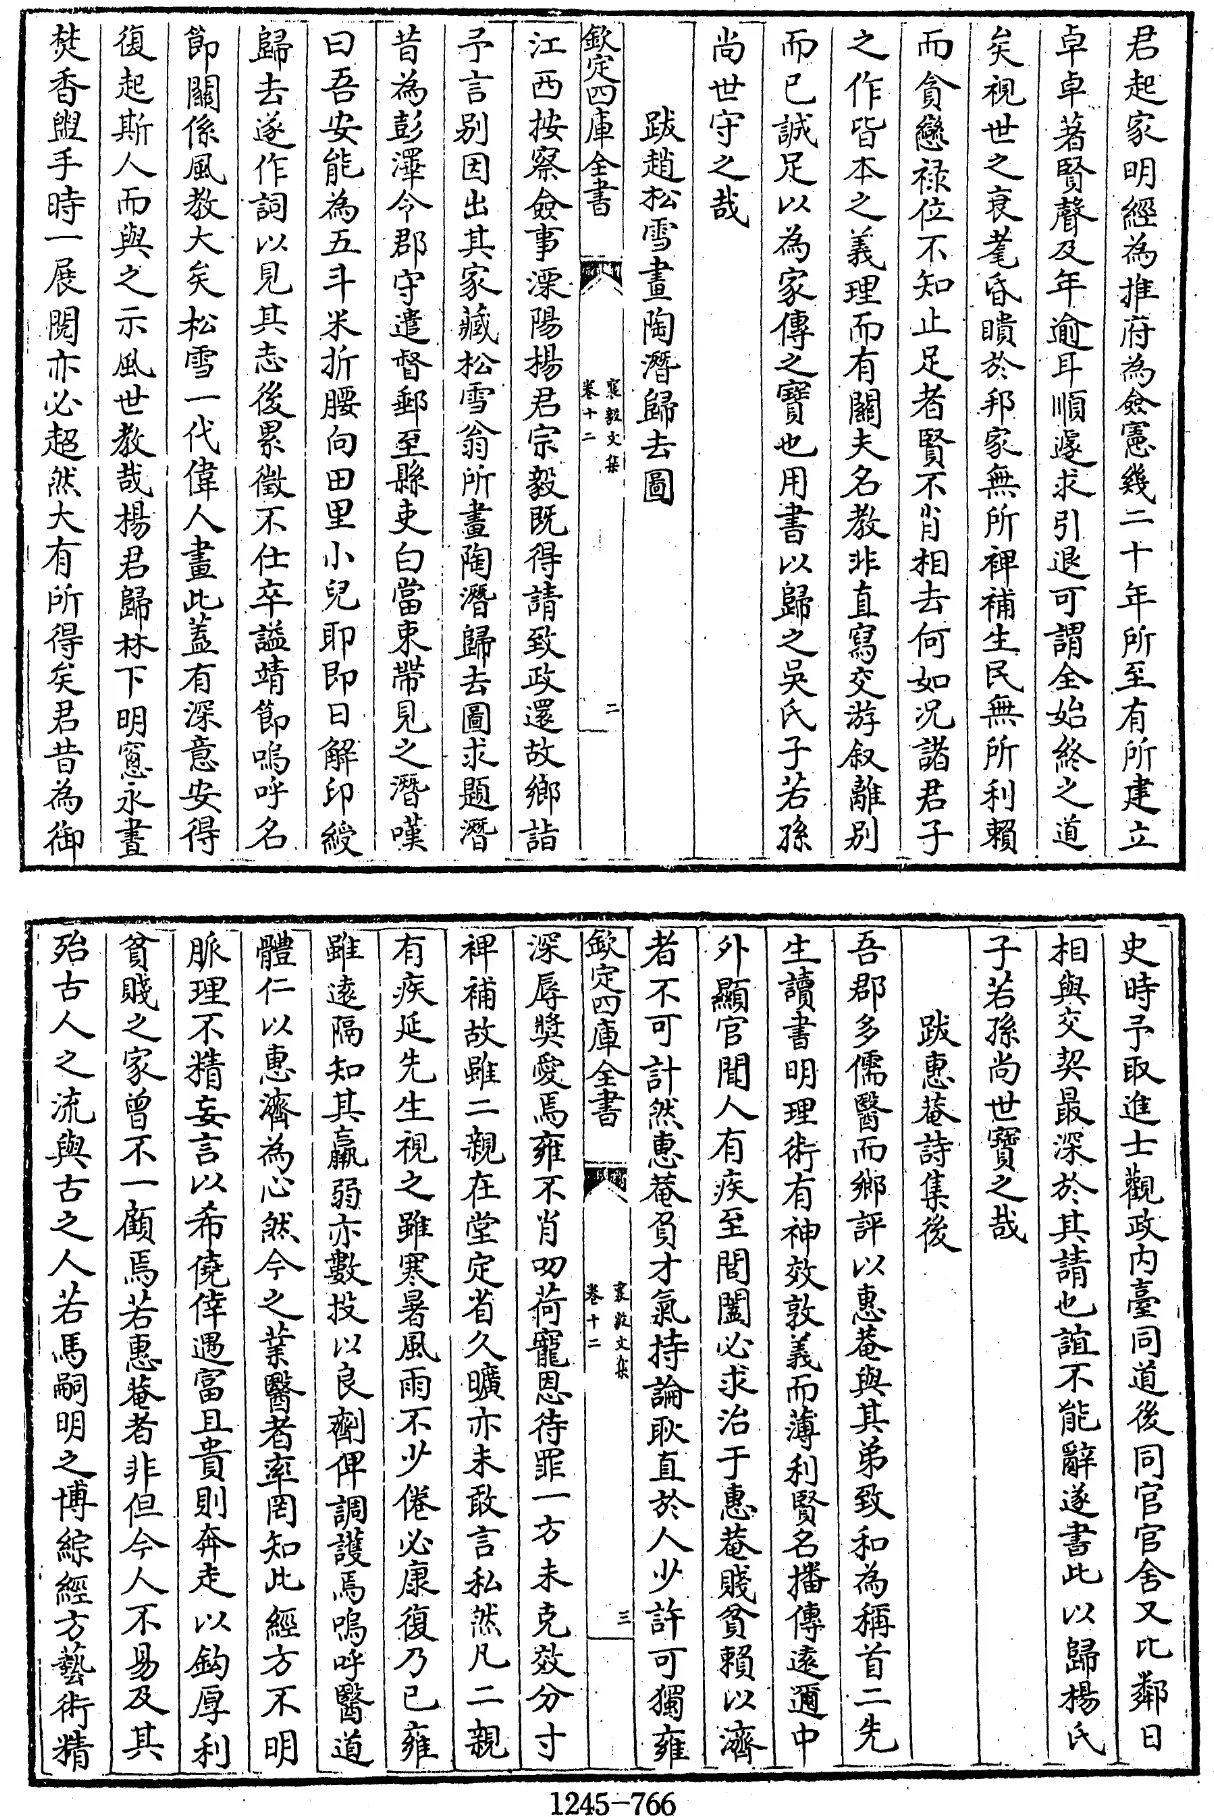 君起家明經為推府為僉憲幾二十年所至有所建立
卓卓著賢聲及年逾耳順遽求引退可謂全始終之道
矣視世之衰耄昏瞶於邦家無所裨補生民無所利賴
而貪戀祿位不知止足者賢不肖相去何如況諸君子
之作皆本之義理而有關夫名教非直寫交游叙離別
而已誠足以為家傳之寶也用書以歸之吳氏子若孫
尚世守之哉
跋趙松雪畫陶潛歸去圖
欽定四庫全書
襄毅文集
卷十二
二
江西按察僉事溧陽楊君宗毅既得請致政還故鄉詣
予言别因出其家藏松雪翁所畫陶潛歸去圖求題潛
昔為彭澤令郡守遣督郵至縣吏白當束帶見之潛嘆
曰吾安能為五斗米折腰向田里小兒耶即日解印綬
歸去遂作詞以見其志後累徵不仕卒謚靖節嗚呼名
節關係風教大矣松雪一代偉人畫此蓋有深意安得
復起斯人而與之示風世教哉楊君歸林下明窓永晝
焚香盥手時一展閱亦必超然大有所得矣君昔為御
史時予取進士觀政内臺同道後同官官舍又比鄰日
相與交契最深於其請也誼不能辭遂書此以歸楊氏
子若孫尚世寶之哉
跋惠菴詩集後
吾郡多儒醫而鄉評以惠菴與其弟致和為稱首二先
生讀書明理術有神效敦義而薄利賢名播傳遠邇中
外顯官聞人有疾至閭闔必求治于惠菴賤貧賴以濟
者不可計然惠菴負才氣持論耿直於人少許可獨雍
欽定四庫全書
襄毅文集
卷十二
三
深辱奬愛焉雍不肖叨荷寵恩待罪一方未克效分寸
裨補故雖二親在堂定省久曠亦未敢言私然凡二親
有疾延先生視之雖寒暑風雨不少倦必康復乃已雍
雖遠隔知其羸弱亦數投以良劑俾調護焉嗚呼醫道
體仁以惠濟為心然今之業醫者率罔知此經方不明
脈理不精妄言以希僥倖遇富且貴則奔走以鈎厚利
貧賤之家曾不一顧焉若惠菴者非但今人不易及其
殆古人之流與古之人若馬嗣明之博綜經方藝術精
1245-766